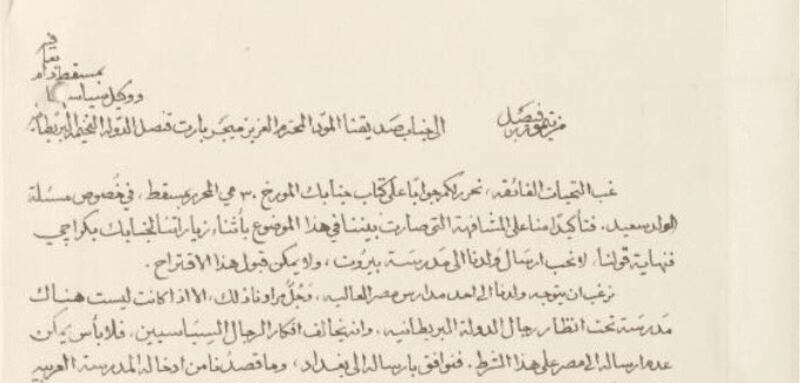 من تيمور بن فيصل
الى جناب صديقنا المودّ المحترم العزيز ميجر بارت قنصل الدولة الفخيمه البريطانيه
ووكيل سياسي
بمسقط دام
بقا
غب التحيات الفائقه، نحرر لكم جوابًا على كتاب جنابك المورخ ٣٠ مي المحرر بمسقط، في خصوص مسئلة
الولد سعيد. فتأكيدًا منا على المشافهة التي صارت بيننا في هذا الموضوع بأثناء زياراتنا لجنابك بكراچي
فنهاية قولنا، لا نحب ارسال ولدنا الى مدرسة بيروت، ولا يمكن قبول هذا الاقتراح.
نرغب ان يتوجه ولدنا الى احد مدارس مصر العاليه، وجُلّ مراونا ذلك، الا اذا كانت ليست هناك
مدرسة تحت انظار رجال الدولة البريطانيه. وانه يخالف افكار الرجال السياسيين، فلا بأس يمكن
عدم ارساله الى مصر على هذا الشرط. فنوافق بارساله الى بغداد، وما قصدنا من ادخاله المدرسة العربيه